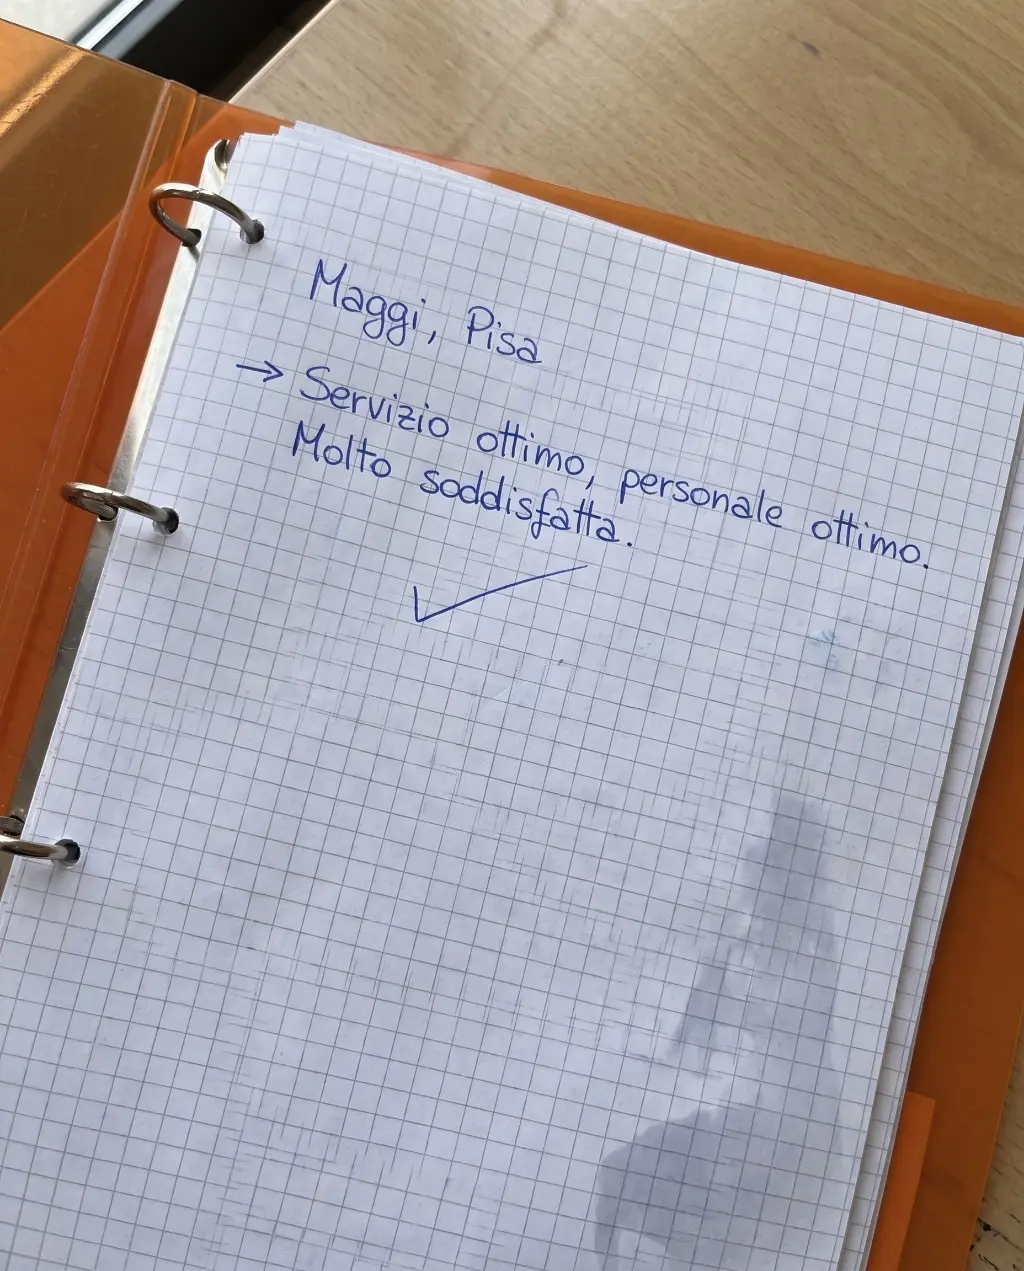 Maggi, Pisa
→ Servizio ottimo, personale ottimo.
Molto soddisfatta.